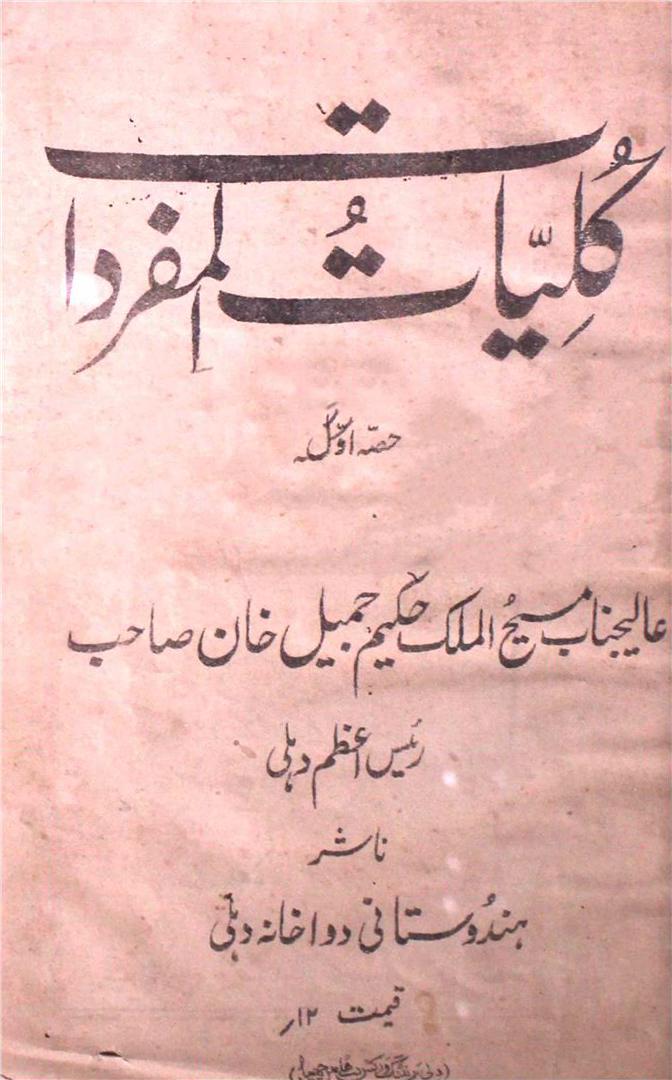 کُلِیّاتُ المفردات
حصّہ اوّل
عالیجناب مسیحُ الملک حکیم جمیل خان صاحب
رئیس اعظم دہلی
ناشر
ہندُوستانی دواخانہ دہلی
قیمت ۱۲؍